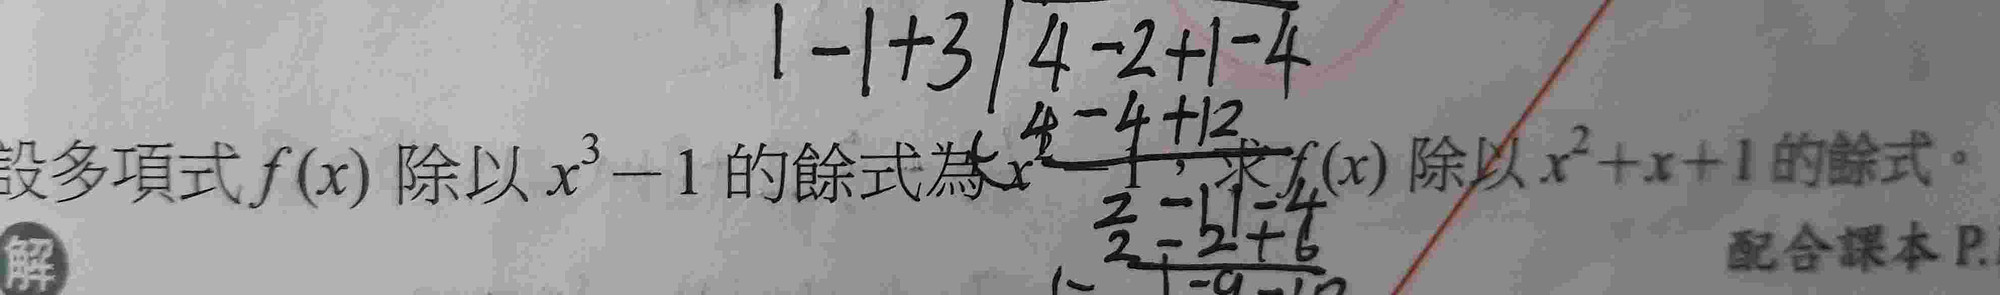 1-1+3 4-2+1-4
4-4+12
設多項式 f(x) 除以 x³-1 的餘式為 x²-1，求 f(x) 除以 x²+x+1 的餘式。
2-11-4
2-2+6
解
配合課本 P.
-9-10